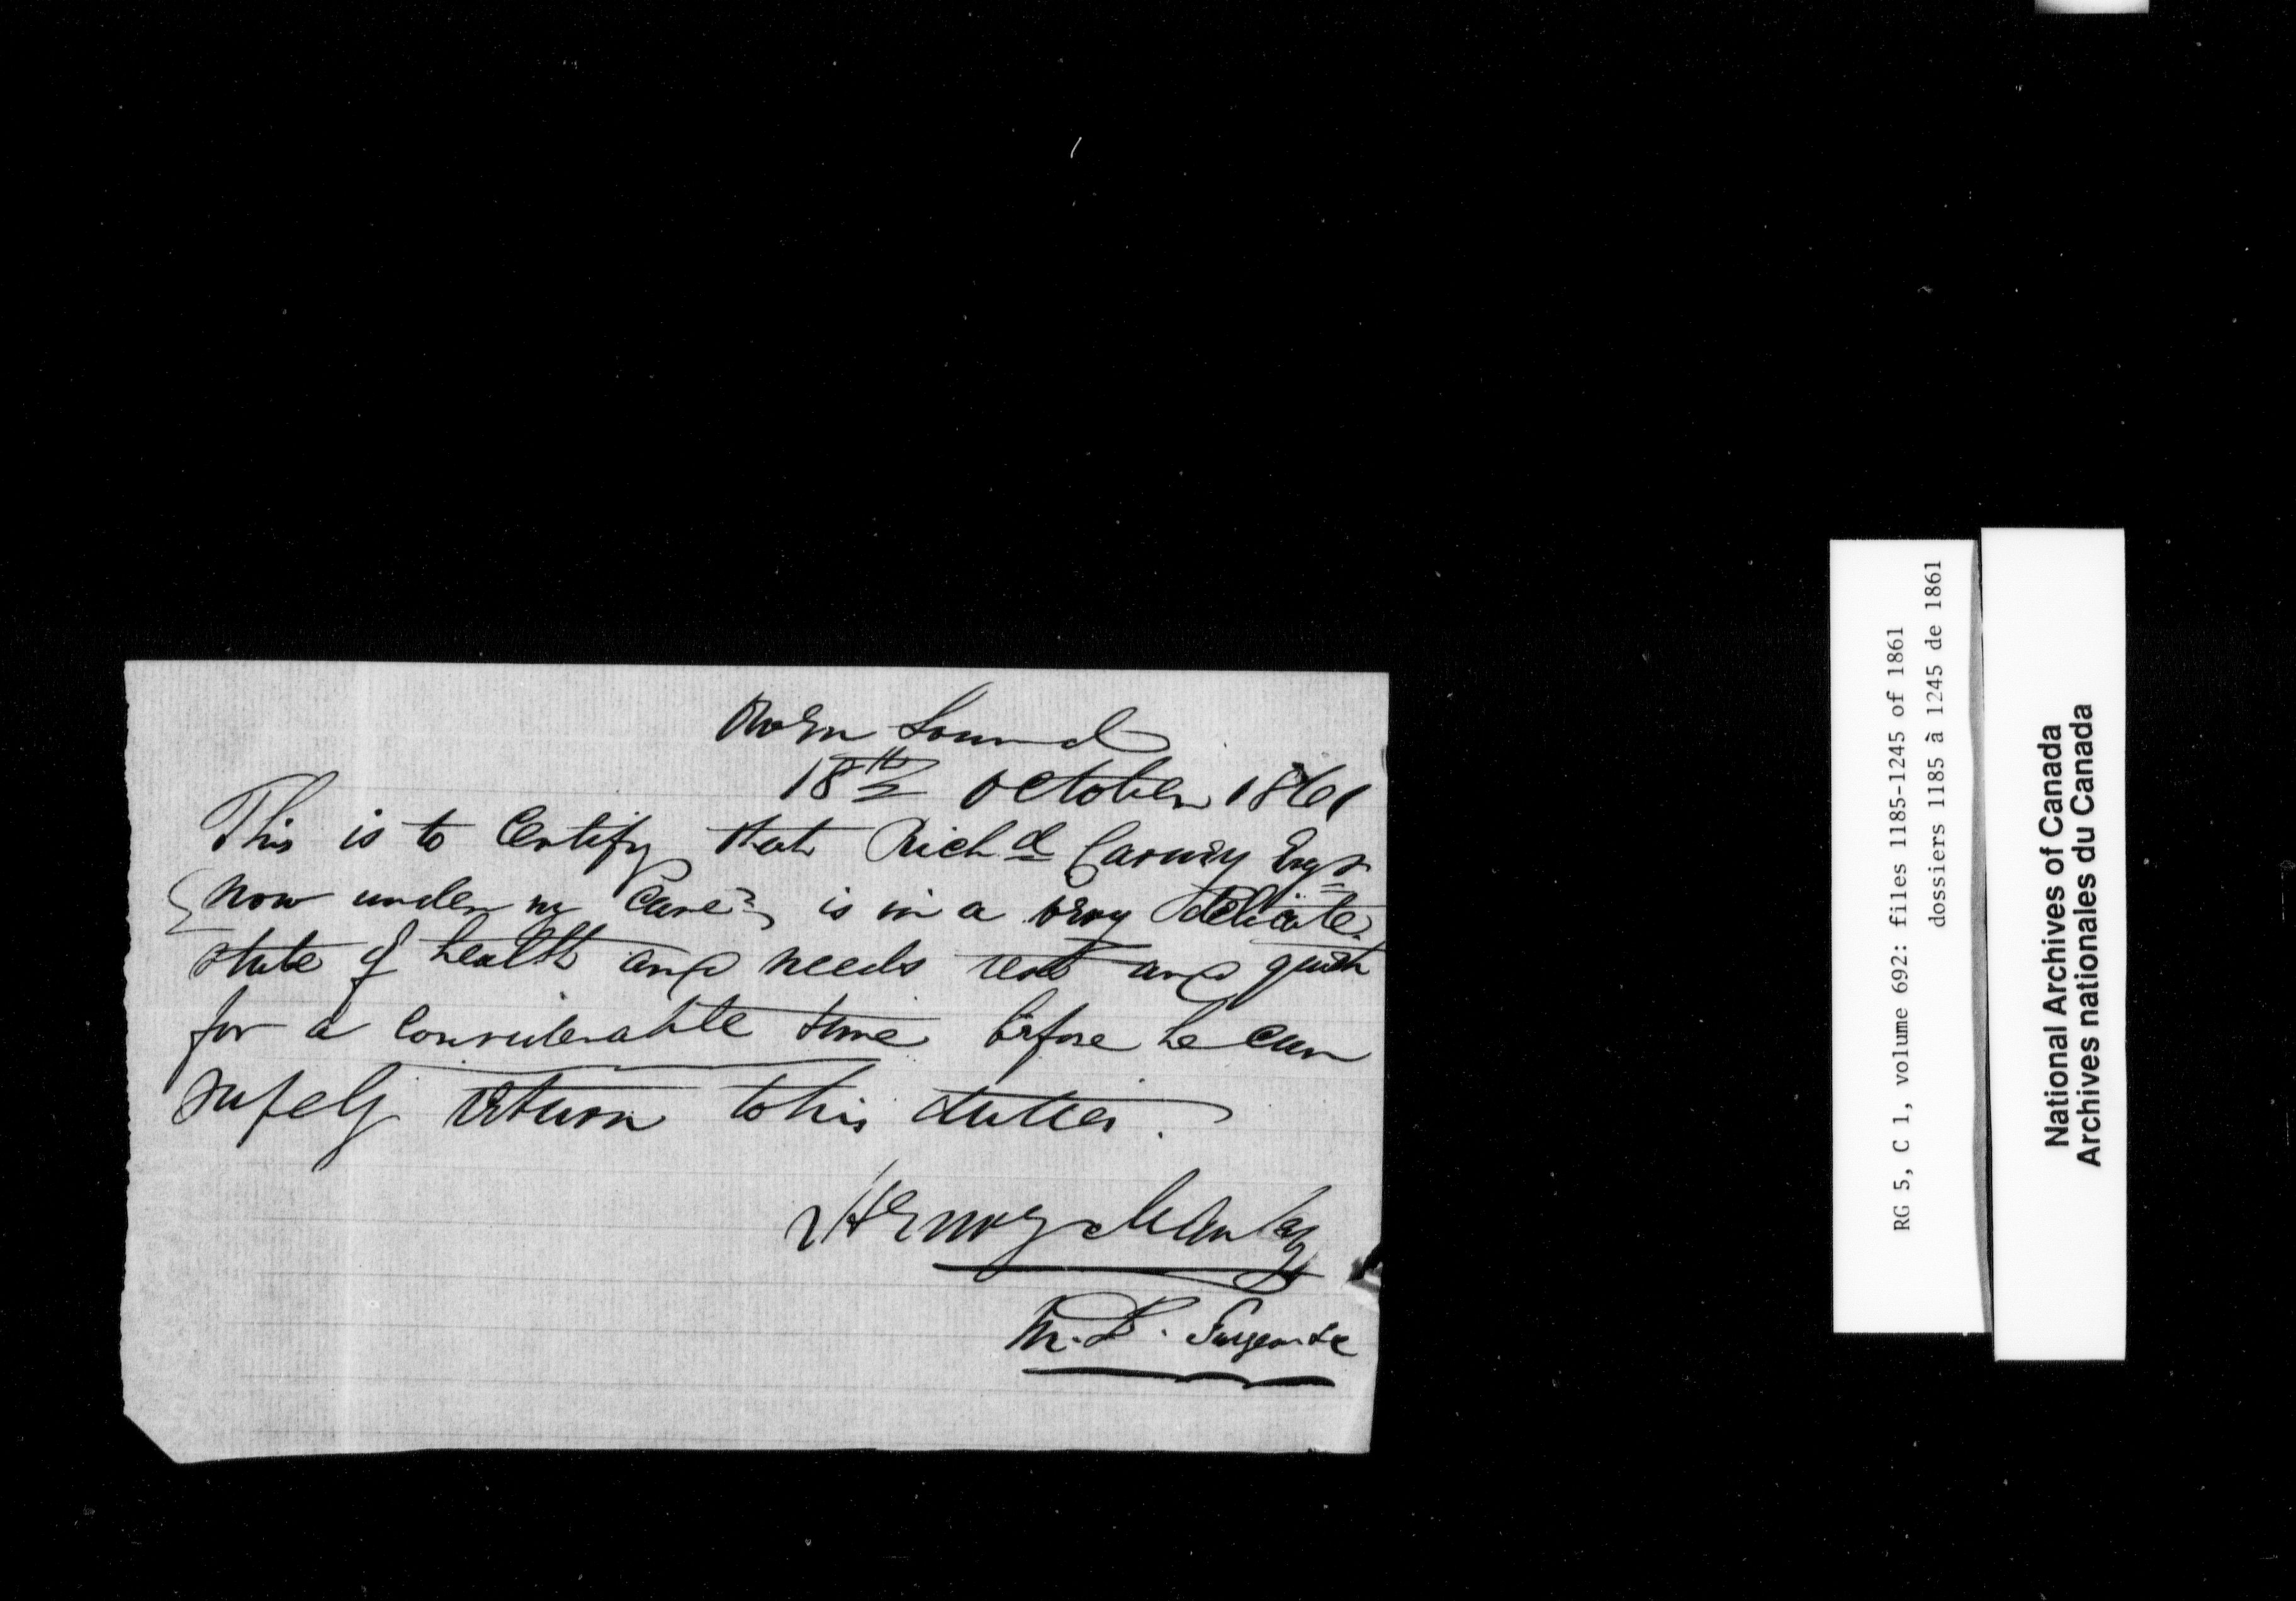 Owen Sound
18th October 1861
This is to Certify that Richd Carney Esqr
(now under my Care) is in a very delicate
state of health and needs rest and quiet
for a considerable time before he can
safely return to his duties.
Henry Manley
M.D. Surgeon &c
RG 5, C 1, volume 692: files 1185-1245 of 1861
dossiers 1185 à 1245 de 1861
National Archives of Canada
Archives nationales du Canada